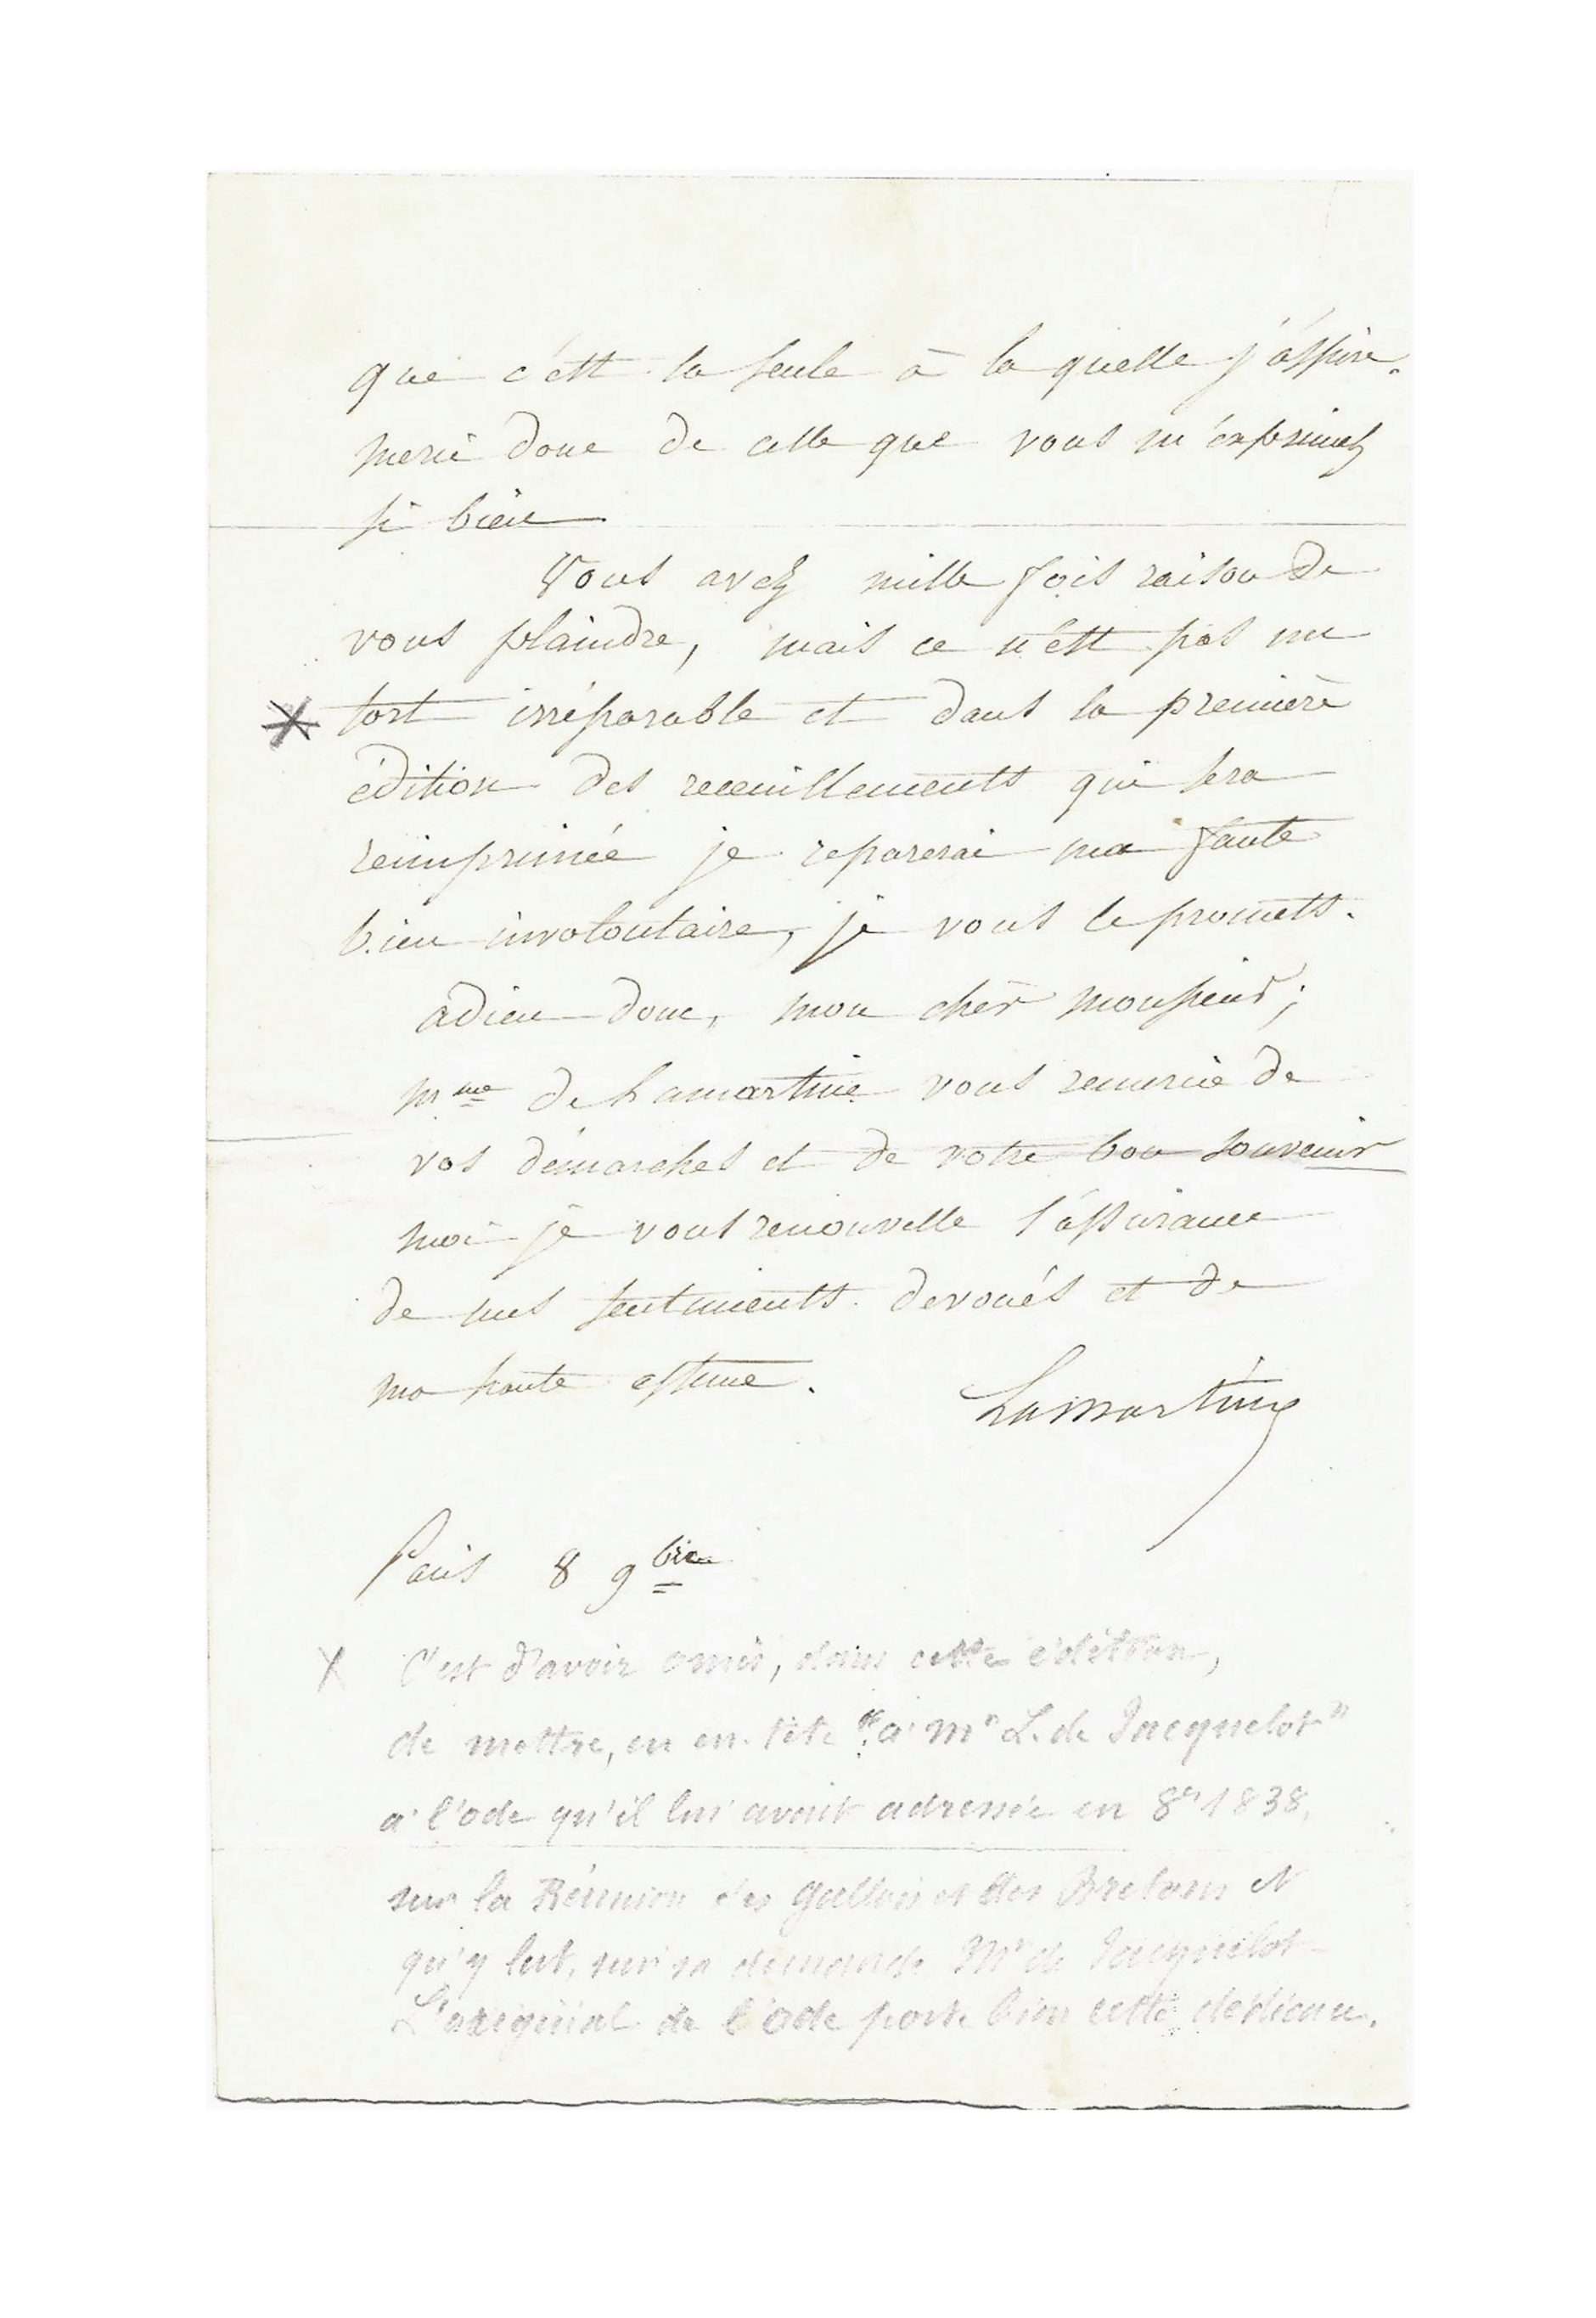 que c'est la seule à la quelle j'aspire.
merci donc de celle que vous m'exprimez
si bien
Vous avez mille fois raison de
vous plaindre, mais ce n'est pas un
* tort irréparable et dans la première
édition des receuillements qui sera
reimprimée je reparerai ma faute
bien involontaire, je vous le promets.
adieu donc, mon cher monsieur;
mme de Lamartine vous remercie de
vos démarches et de votre bon souvenir
moi je vous renouvelle l'assurance
de mes sentiments devoués et de
ma haute estime.
Lamartine
Paris 8 9bre
X C'est d'avoir omis, dans cette édition,
de mettre, en en-tête "à Mr L. de Jacquelot"
à l'ode qu'il lui avait adressée en 8e 1838,
sur la Réunion des Gallois et des Bretons et
qu'y lut, sur sa demande Mr de Jacquelot
L'original de l'ode porte bien cette dédicace.